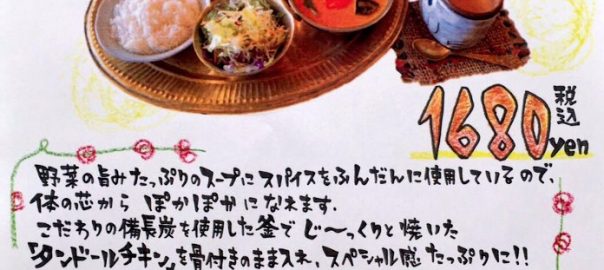 1680yen 税込
野菜の旨みたっぷりのスープにスパイスをふんだんに使用しているので、
体の芯から ぽかぽかになれます。
こだわりの備長炭を使用した釜でじ〜っくりと焼いた
「タンドールチキン」を骨付きのまま入れ、スペシャル感たっぷりに!!